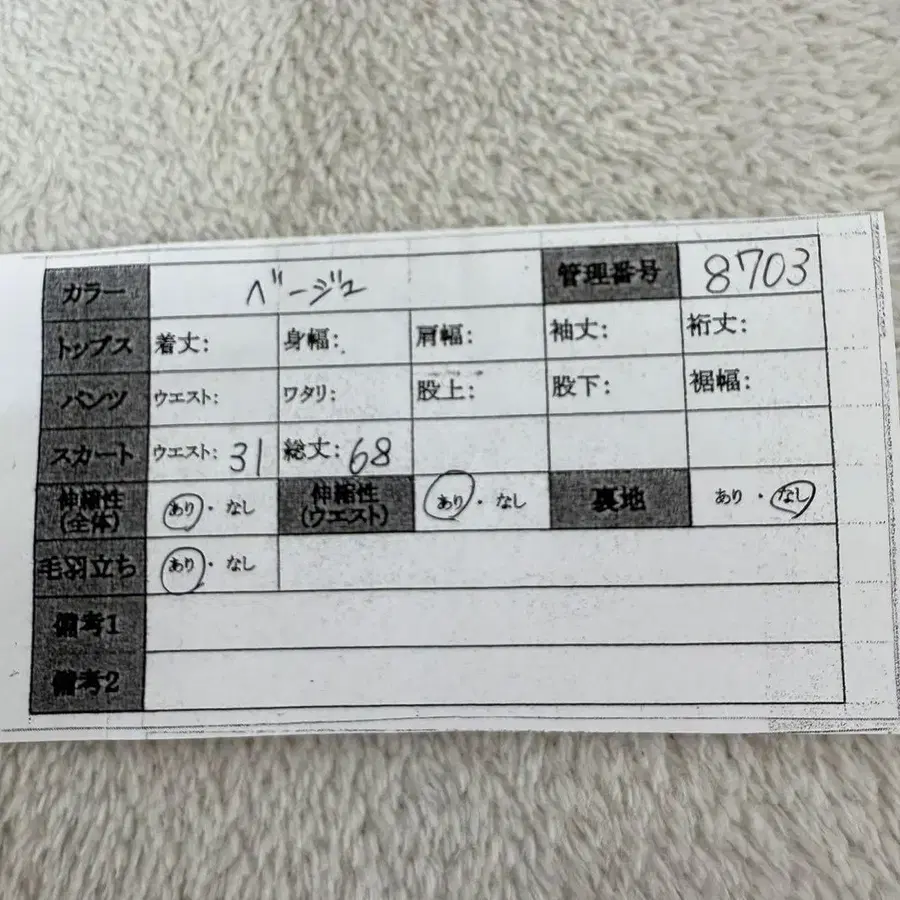 カラー ベージュ 管理番号 8703
トップス 着丈: 身幅: 肩幅: 袖丈: 裄丈:
パンツ ウエスト: ワタリ: 股上: 股下: 裾幅:
スカート ウエスト: 31 総丈: 68
伸縮性(全体) あり・なし 伸縮性(ウエスト) あり・なし 裏地 あり・なし
毛羽立ち あり・なし
備考1
備考2